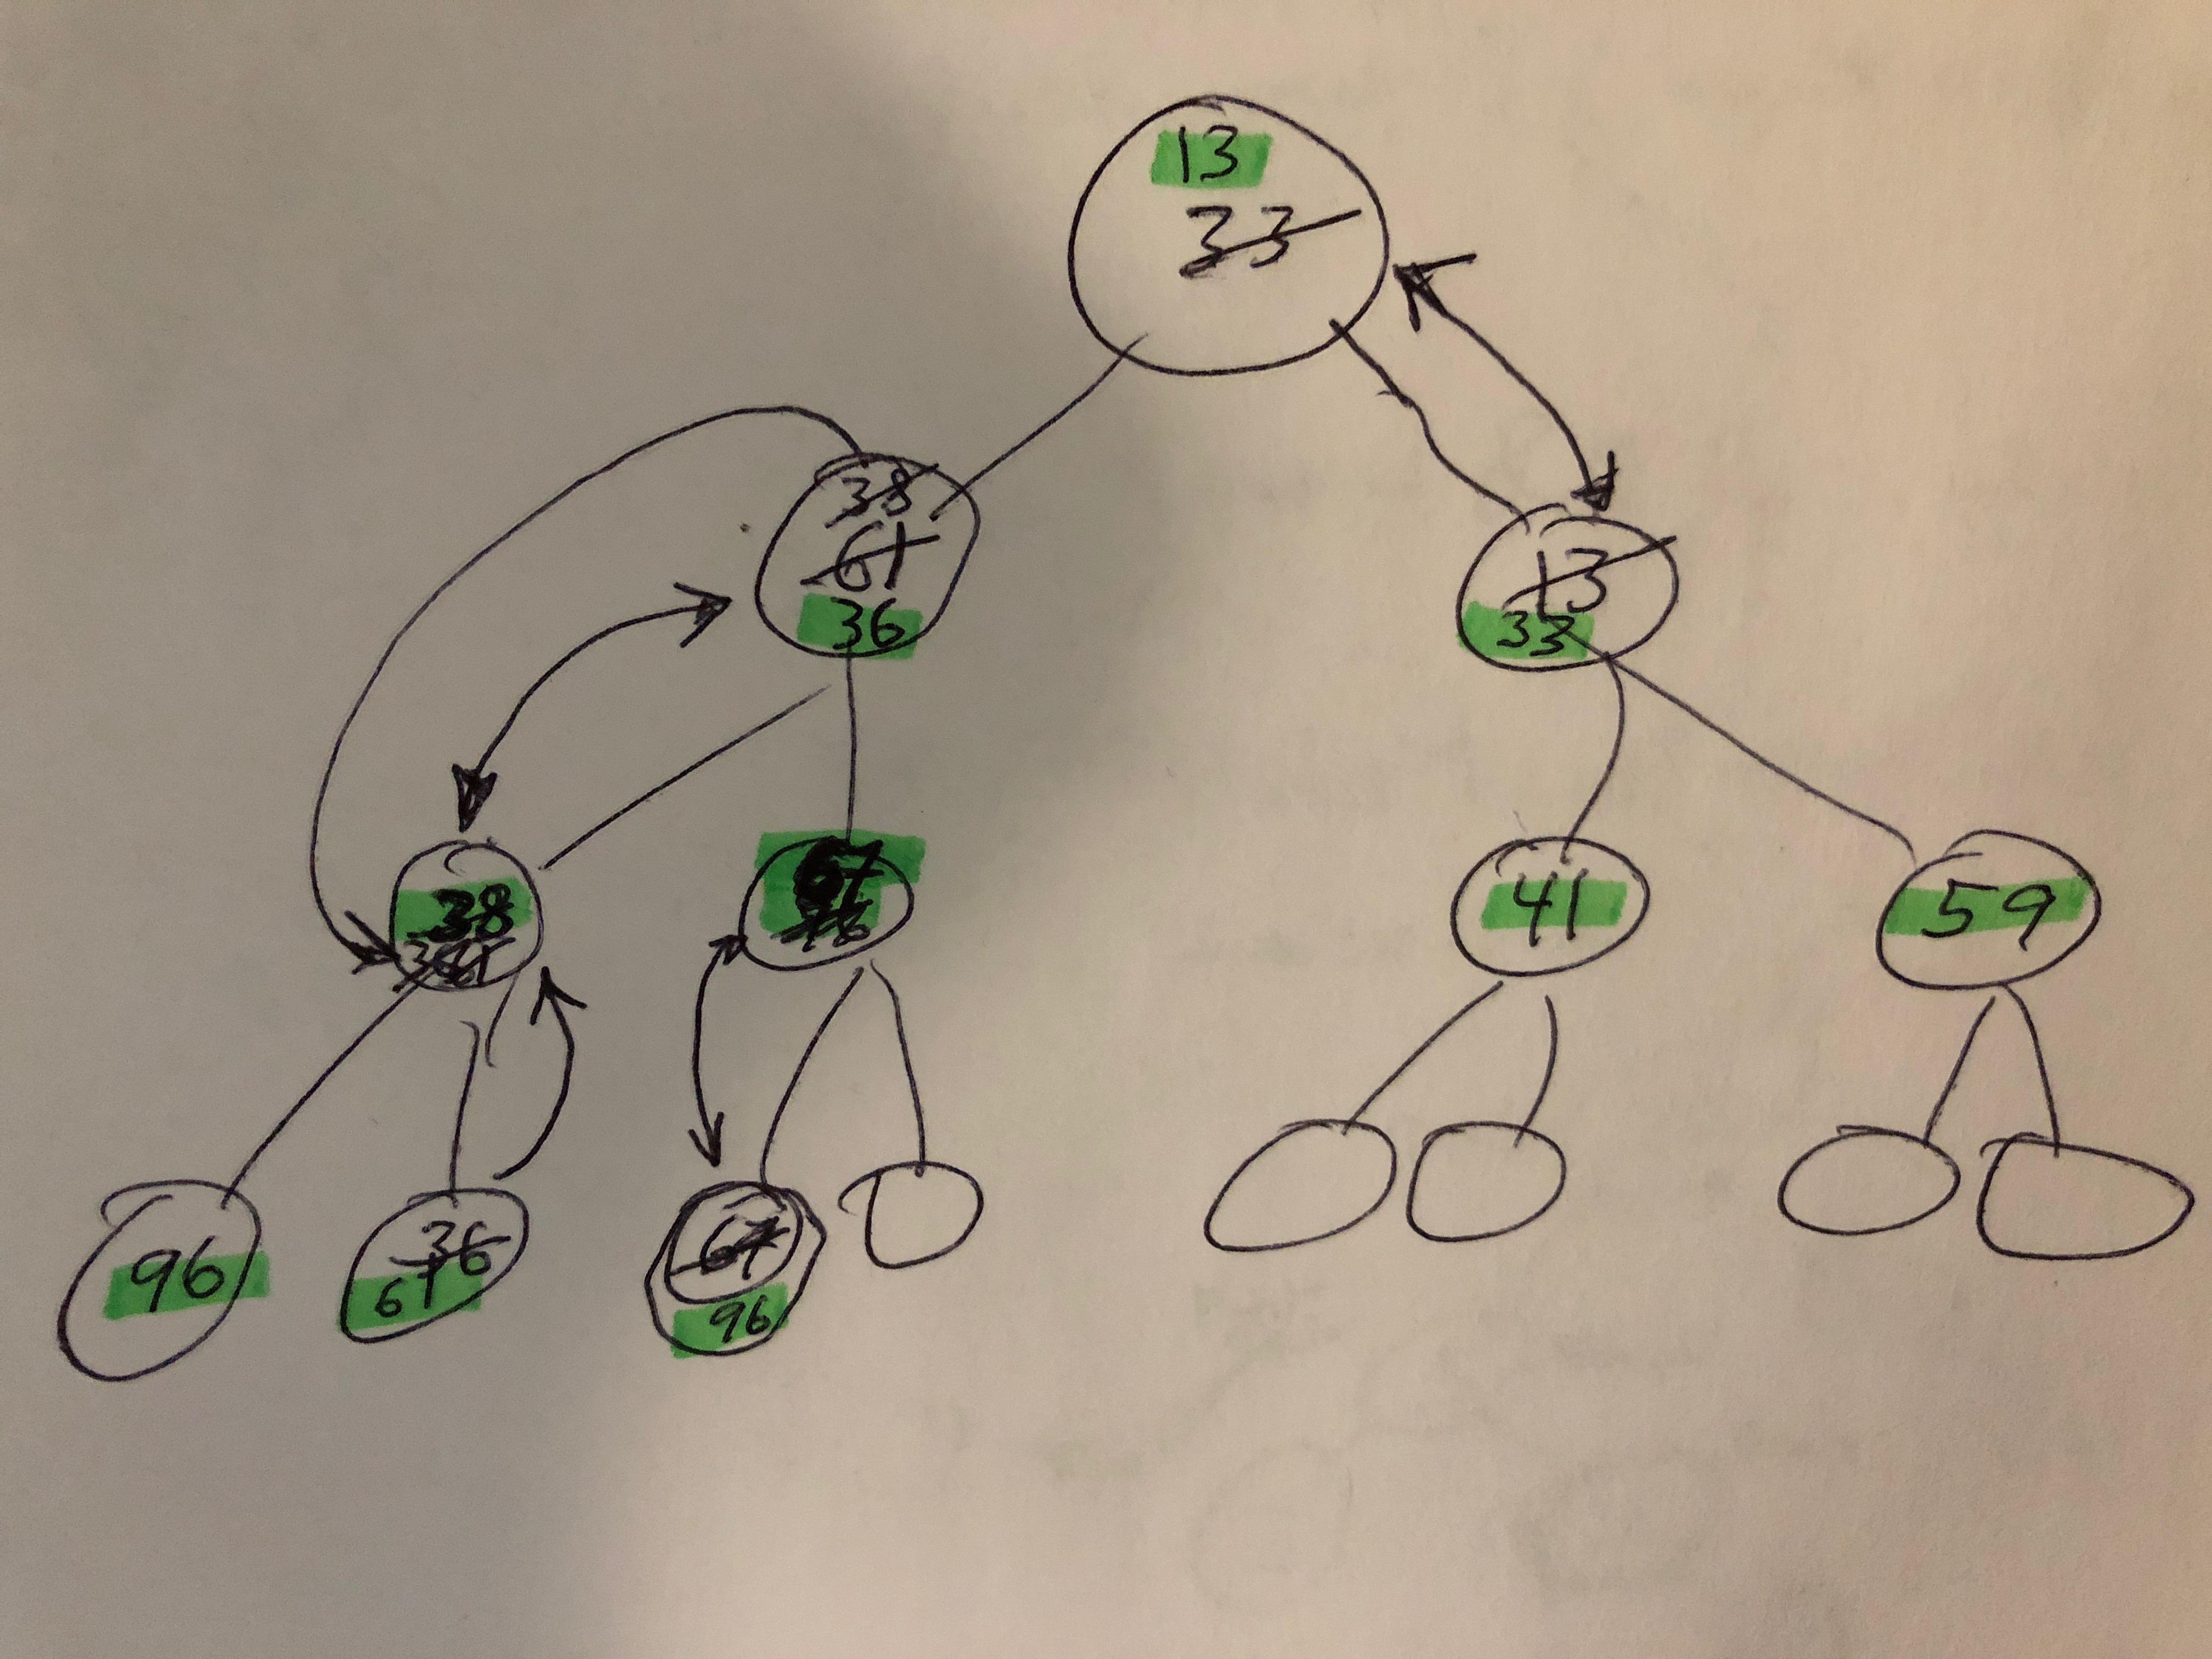 13
33
38
61
36
13
33
38
67
41
59
96
36
61
67
96